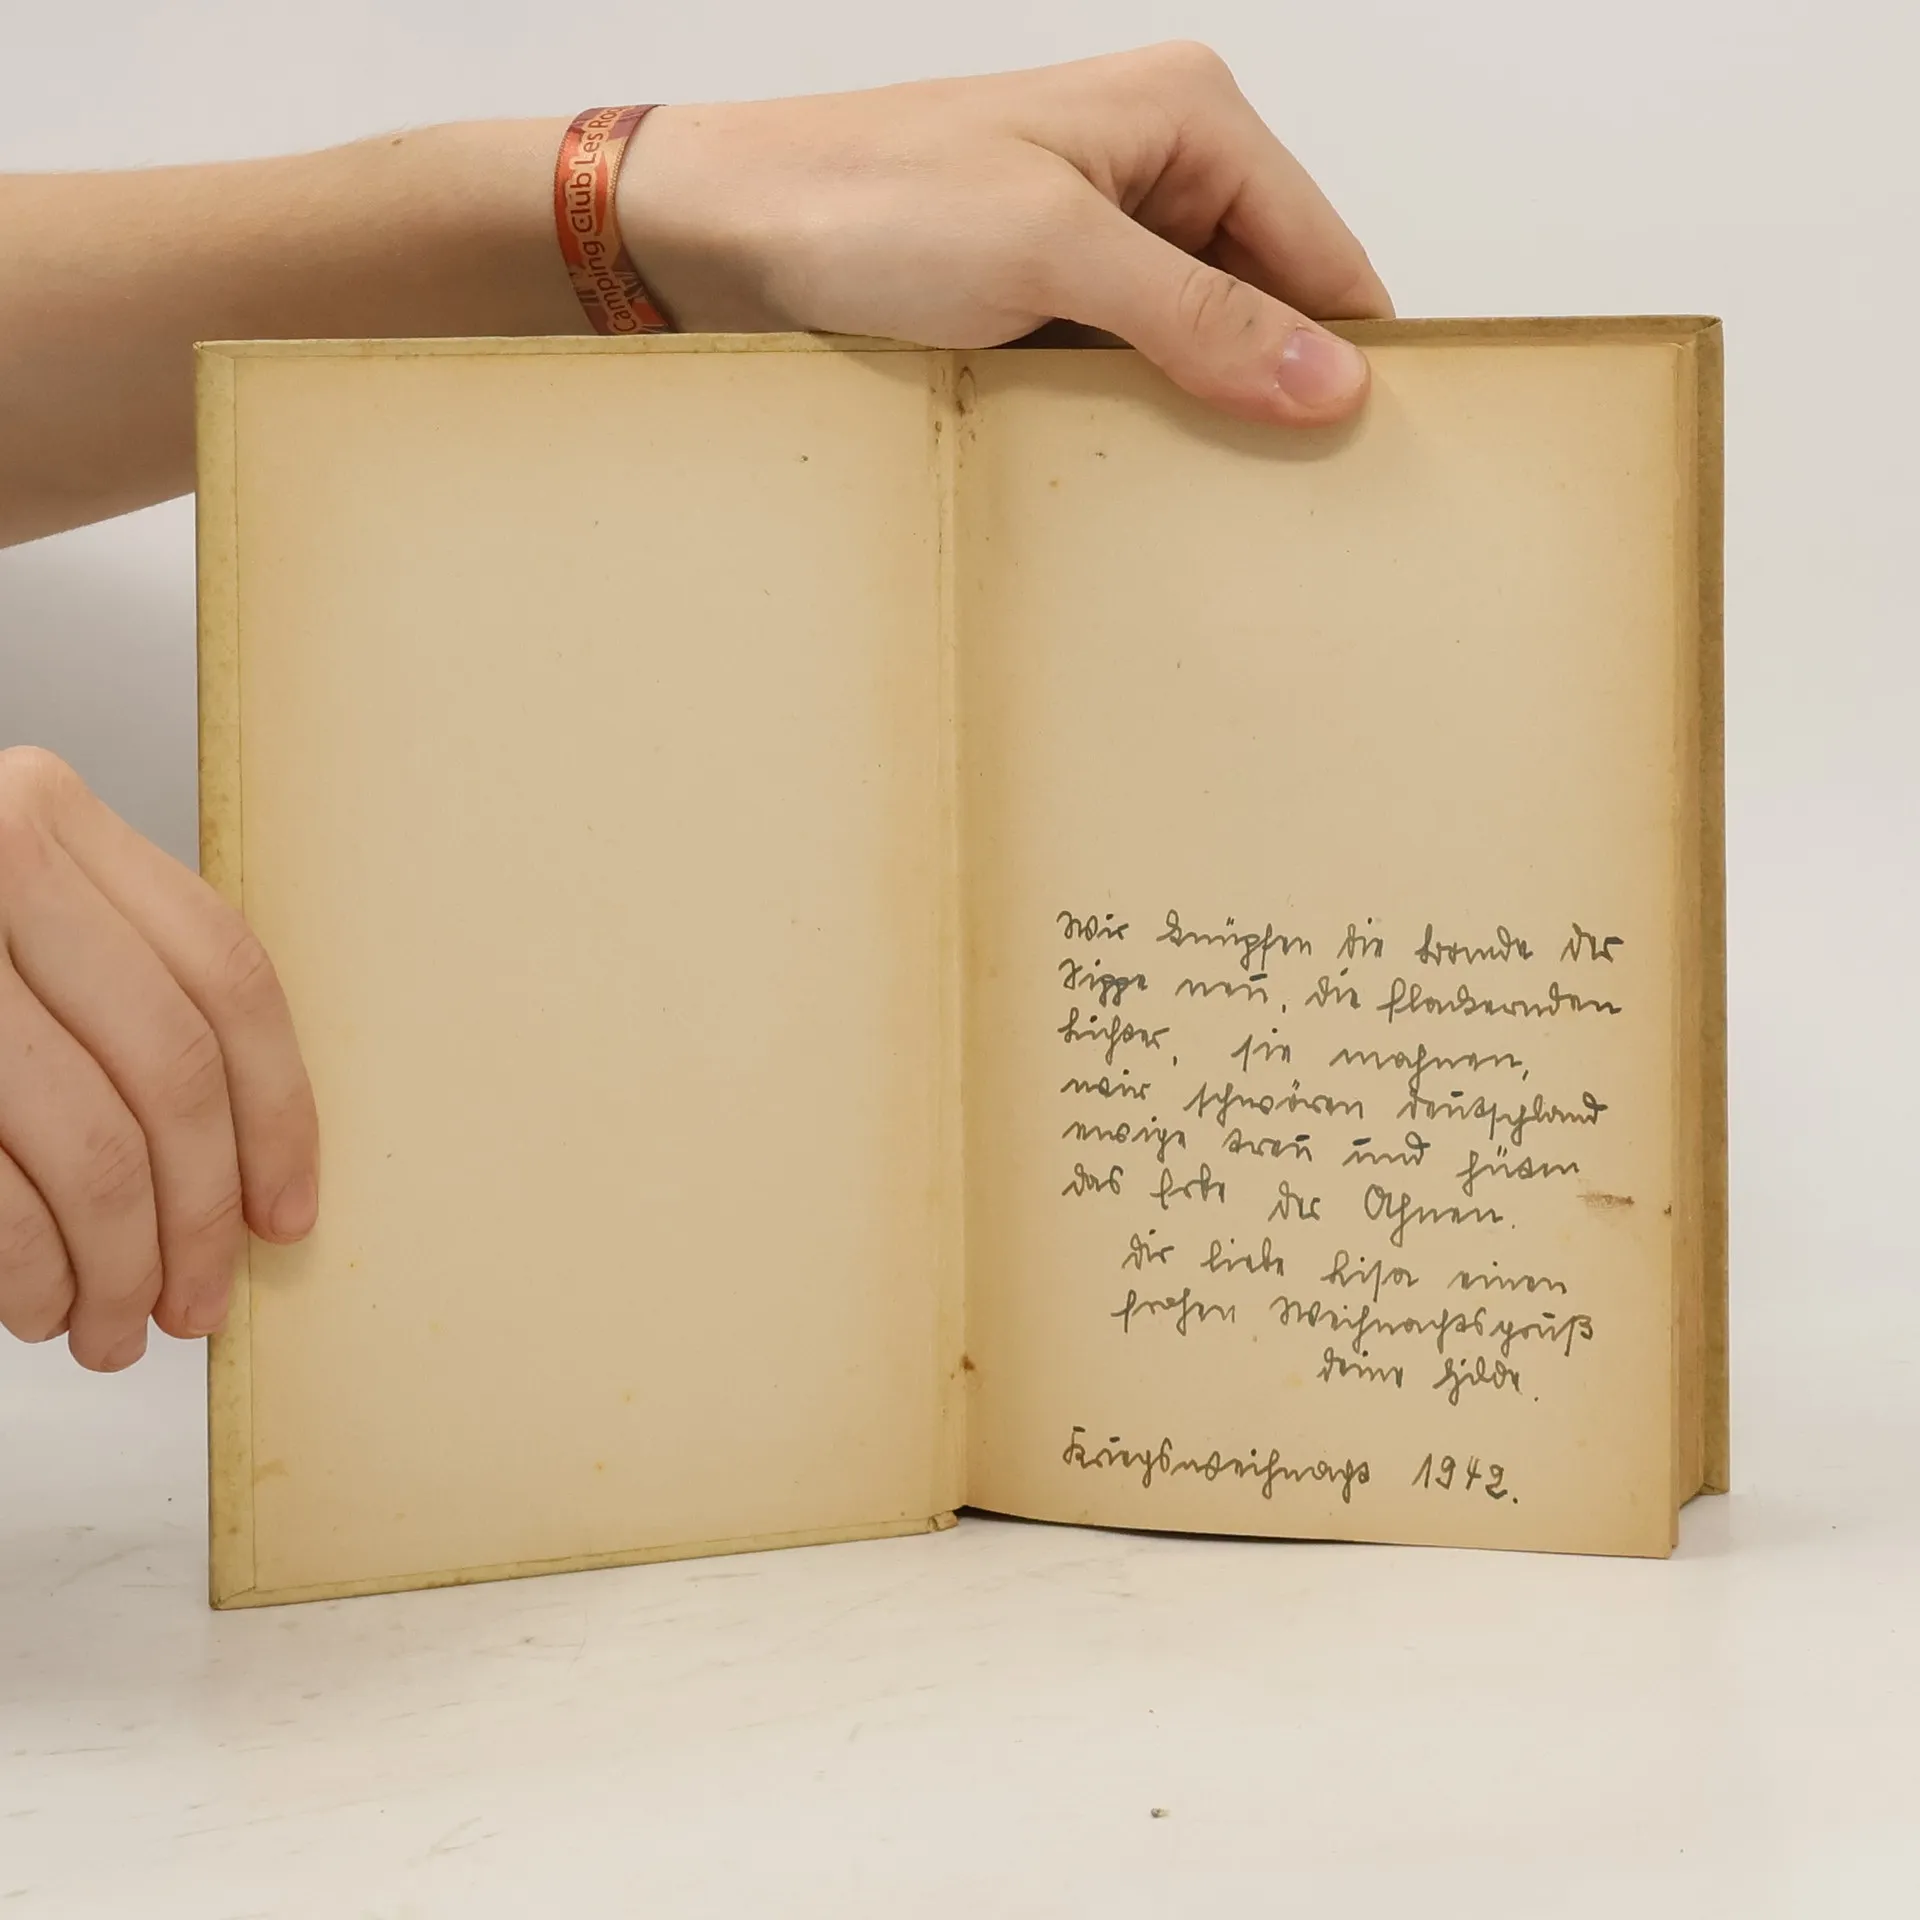 Camping Club Les
Wir knüpfen die Bande der
Sippe neu, die flackernden
Lichter, sie mahnen,
wir schwören Deutschland
ewige Treu und hüten
das Erbe der Ahnen.
Dir liebe Lisa einen
frohen Weihnachtsgruß
deine Hilde.
Kriegsweihnacht 1942.